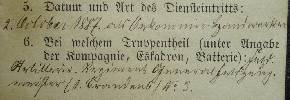 5. Datum und Art des Diensteintritts:
2. October 1887 als Oekonomie-Handwerker
6. Bei welchem Truppentheil (unter Angabe
der Kompagnie, Eskadron, Batterie): Feld-
Artillerie-Regiment General-Feldzeug-
meister (1. Brandenb.) № 3.